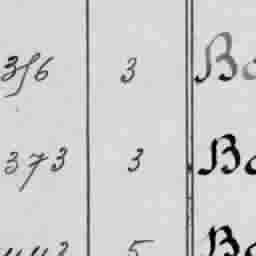 356 3 Bo
373 3 Bo
5 Bo